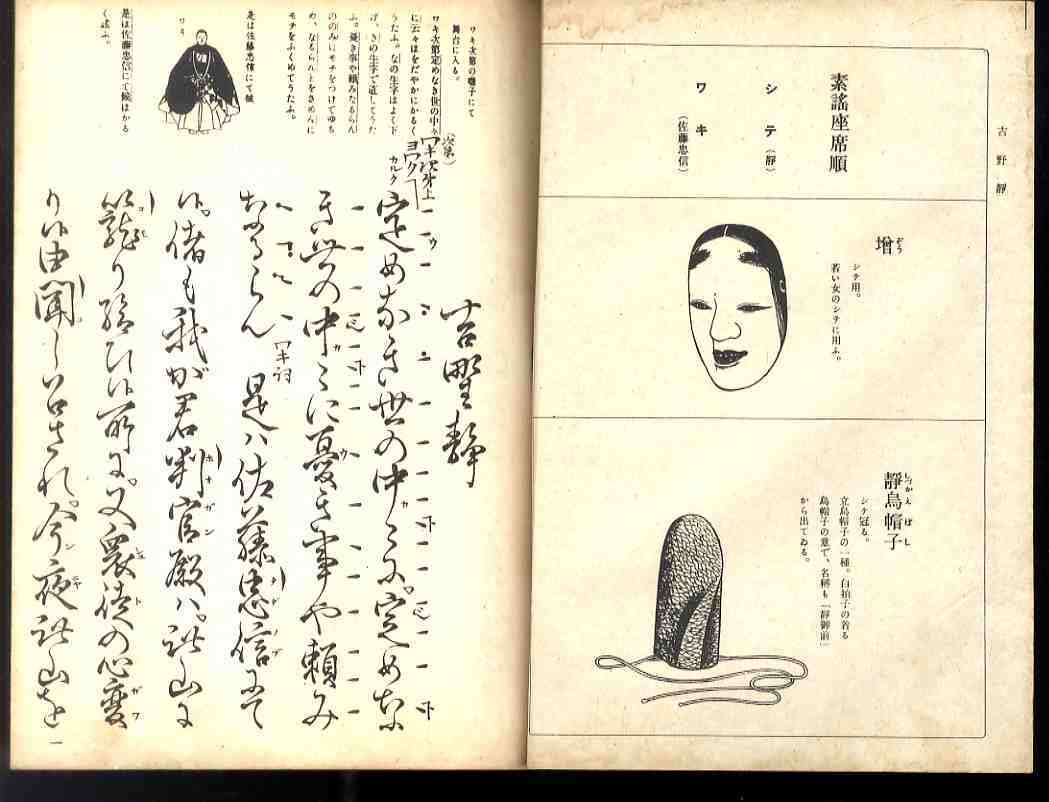 吉野靜
素謠座席順
シテ（靜）
ワキ（佐藤忠信）
增
ぞう
シテ用。
若い女のシテに用ふ。
靜烏帽子
しづかえぼし
シテ冠る。
立烏帽子の一種。白拍子の着る
烏帽子の意で、名稱も「靜御前」
から出てゐる。
ワキ次第の囃子にて
舞台に入る。
ワキ次第定めなき世の中々
に云々はをだやかにかるく
うたふ。なの生字はよく下
げ、きの生字で直してうた
ふ。憂き事や賴みなるらん
ののみにモチをつけてゆる
め、なるらん上をさめんに
モチをふくめてうたふ。
是は佐藤忠信にて候
ワキ
是は佐藤忠信にて候はかる
く謠ふ。
吉野靜
（次第）
ワキ次第上
ヨワク
カルク
定めなき世の中々に。定めな
き世の中々に憂き事や賴み
なるらん
ワキ詞
是ハ佐藤忠信にて
候。偖も我が君判官殿ハ。此山に
籠り給ひ候所に。又衆徒の心變
り候由聞しめされ。今夜此山を
一